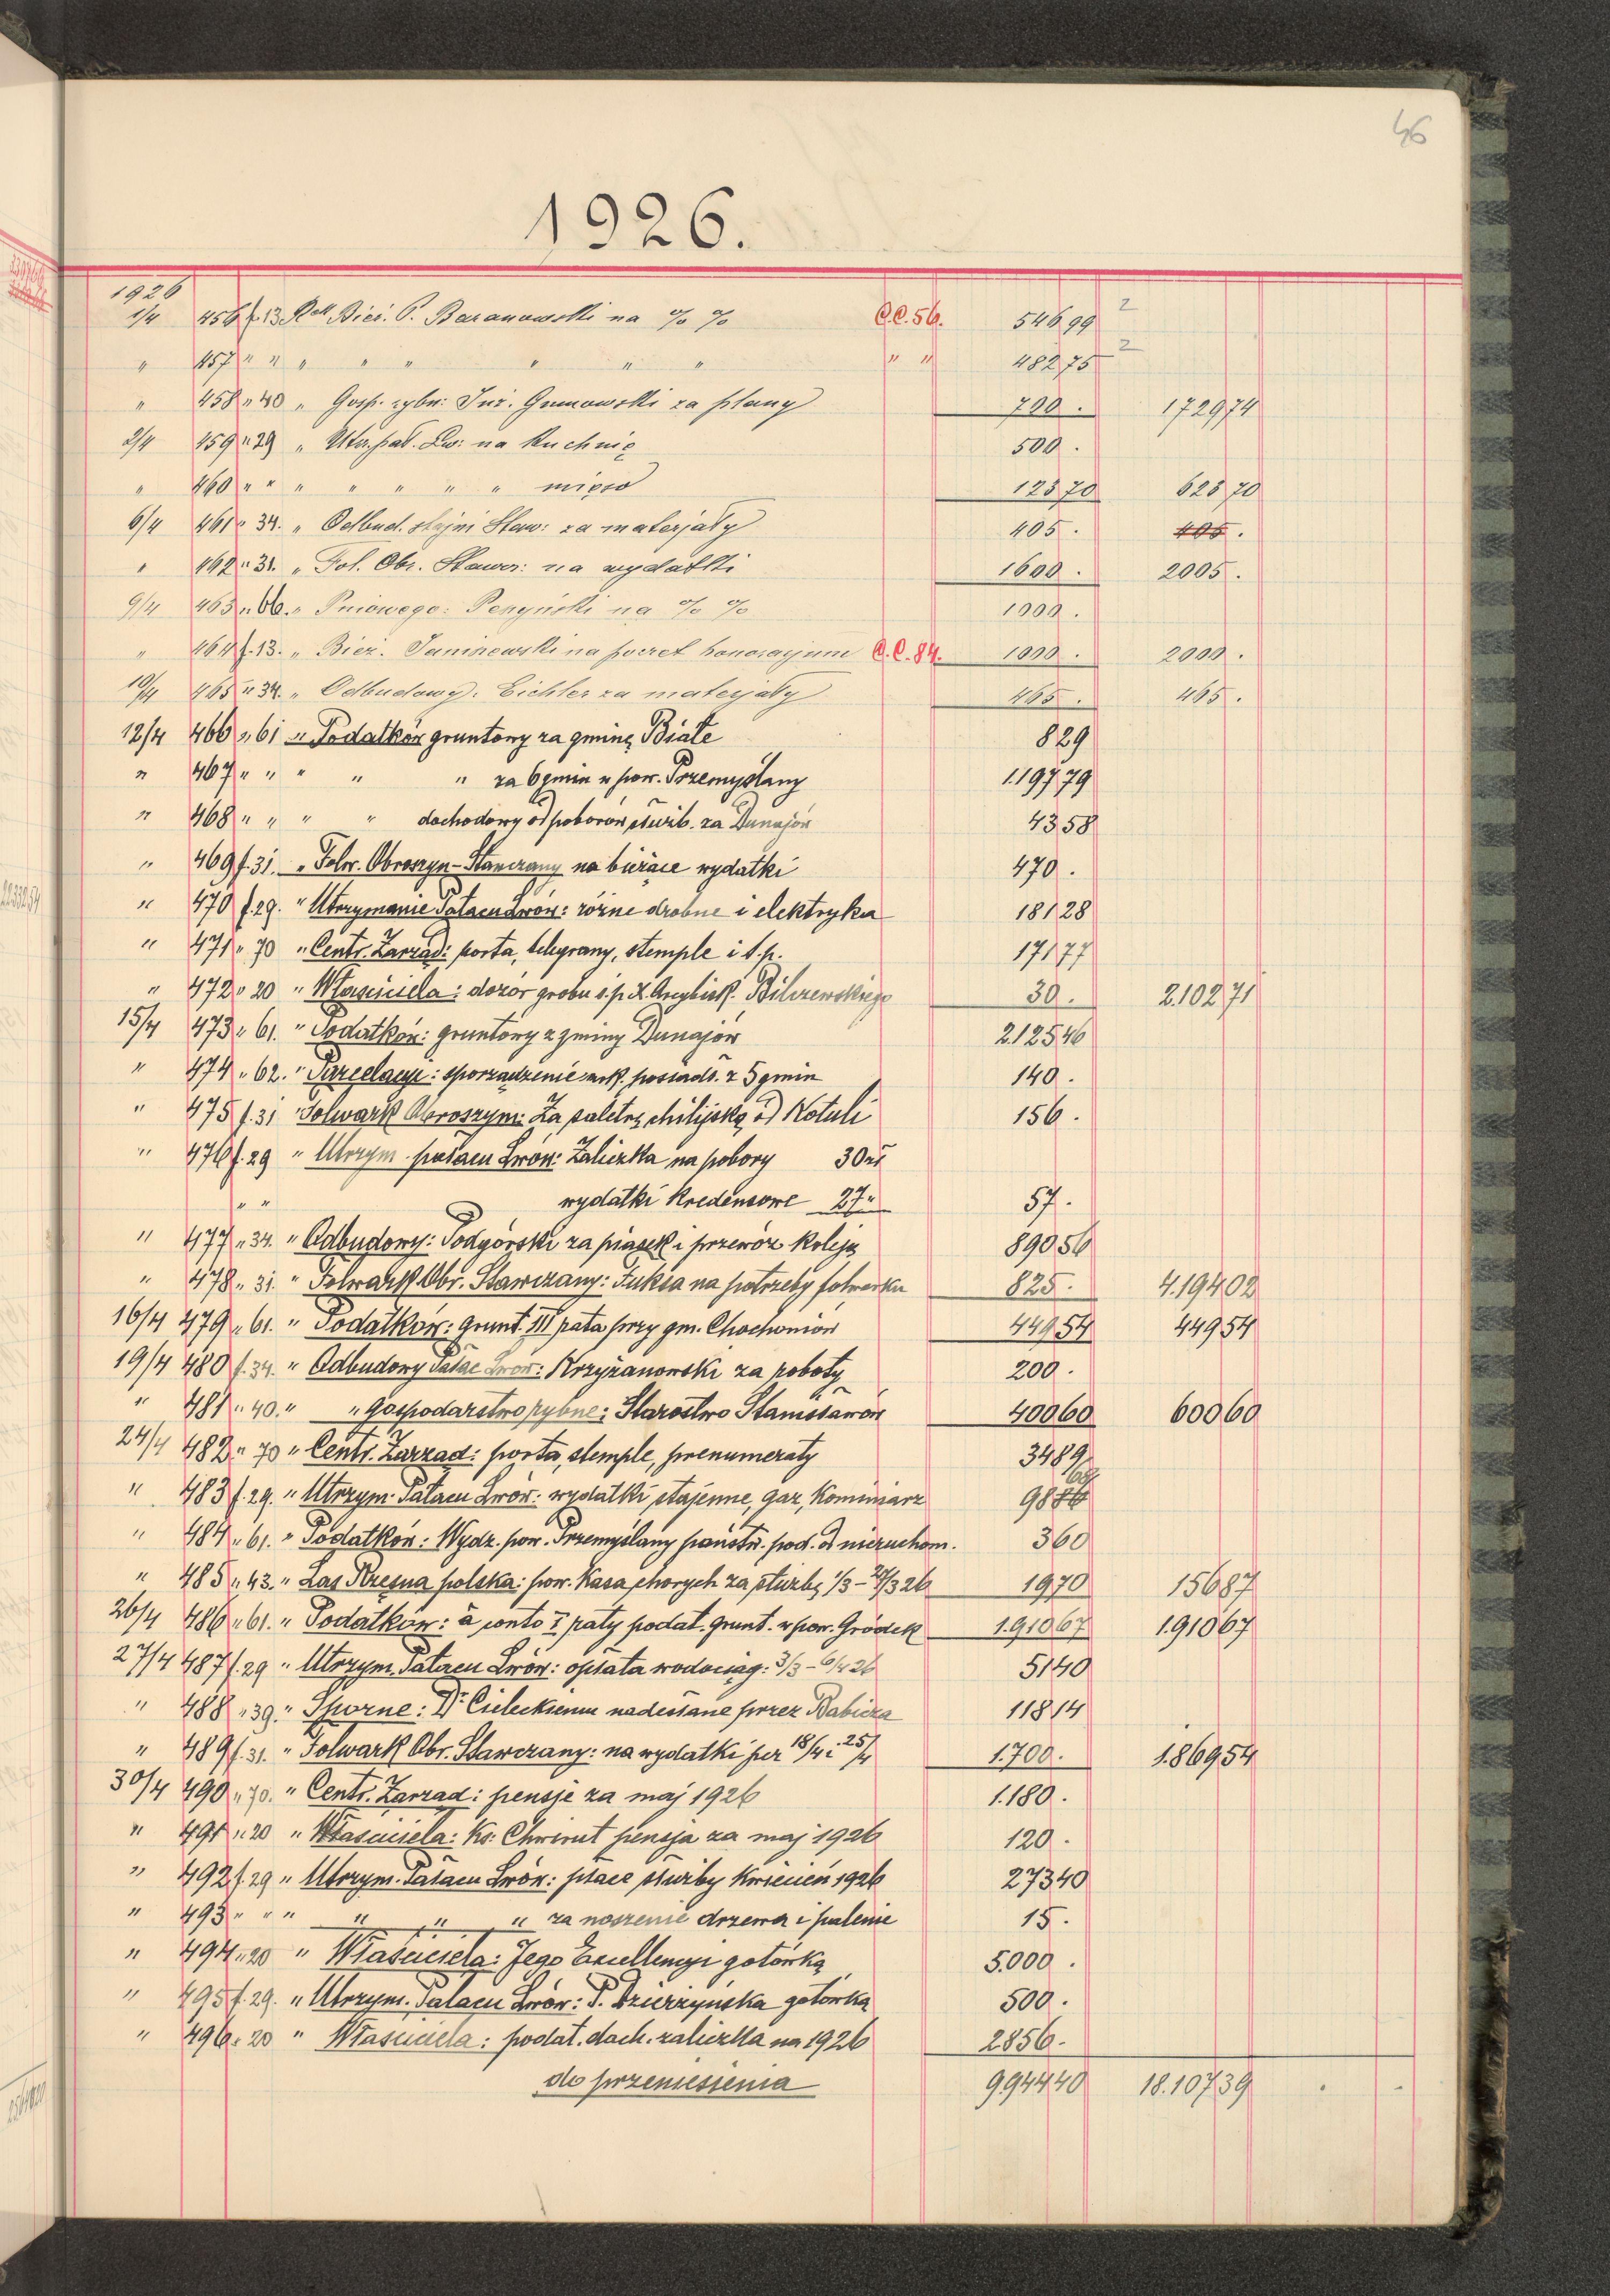 46
1926.
1926
1/4 456 f. 13 Rck Bież. P. Baranowski na % % C.C. 56. 546 99 2
" 457 " " " " " " " " " " 482 75 2
" 458 " 40 " Gosp. rybn: Inż. Gumowski za plany 700 . 1729 74
2/4 459 " 29 " Utr. pał. Lw: na kuchnię 500 .
" 460 " " " " " " " mięso 123 70 623 70
6/4 461 " 34. " Odbud. stajni Staw: za materjały 405 . 405 .
" 462 " 31. " Fol. Obr. Stawcz: na wydatki 1600 . 2005 .
9/4 463 " 66. " Pniowego: Penyński na % % 1000 .
" 464 f. 13. " Bież. Janiszewski na poczet honorarjum C.C. 84. 1000 . 2000 .
10/4 465 " 34. " Odbudowy: Eichler za materjały 465 . 465 .
12/4 466 " 61 " Podatków gruntowy za gminę Białe 8 29
" 467 " " " " " za 6 gmin w pow. Przemyślany 1.197 79
" 468 " " " " dochodowy od poborów służb. za Dunajów 43 58
" 469 f. 31. " Folw. Obroszyn-Stawczany na bieżące wydatki 470 .
" 470 f. 29. " Utrzymanie Pałacu Lwów: różne drobne i elektryka 181 28
" 471 " 70 " Centr. Zarząd: porta, telegramy, stemple i t. p. 171 77
" 472 " 20 " Właściciela: dozór grobu ś. p. X. Arcybisk. Bilczewskiego 30 . 2.102 71
15/4 473 " 61. " Podatków: gruntowy z gminy Dunajów 2.125 46
" 474 " 62. " Parcelacyi: sporządzenie ark. posiadł. z 5 gmin 140 .
" 475 f. 31 " Folwark Obroszyn: Za saletrę chilijską od Kotuli 156 .
" 476 f. 29 " Utrzym. pałacu Lwów: Zaliczka na pobory 30 zł
" " wydatki kredensowe 27 " 57 .
" 477 " 34. " Odbudowy: Podgórski za piasek i przewóz koleją 890 56
" 478 " 31. " Folwark Obr. Stawczany: Fuksa na potrzeby folwarku 825 . 4.194 02
16/4 479 " 61. " Podatków: grunt. III rata przy gm. Chochoniów 449 54 449 54
19/4 480 f. 34. " Odbudowy Pałac Lwów: Krzyżanowski za roboty 200 .
" 481 " 40. " " Gospodarstwo rybne: Starostwo Stanisławów 400 60 600 60
24/4 482 " 70 " Centr. Zarząd: porta, stemple, prenumeraty 34 89
" 483 f. 29. " Utrzym. Pałacu Lwów: wydatki stajenne, gaz, kominiarz 98 68
" 484 " 61. " Podatków: Wydz. pow. Przemyślany państw. pod. od nieruchom. 3 60
" 485 " 43. " Las Rzęsna polska: pow. Kasa chorych za służbę 1/3 - 28/3 26 19 70 156 87
26/4 486 " 61. " Podatków: à conto I raty podat. grunt. w pow. Gródek 1.910 67 1.910 67
27/4 487 f. 29 " Utrzym. Pałacu Lwów: opłata wodociąg: 3/3 - 6/4 26 51 40
" 488 " 39. " Sporne: Dr Cieleckiemu nadesłane przez Babicza 118 14
" 489 f. 31. " Folwark Obr. Stawczany: na wydatki per 18/4 i 25/4 1.700 . 1.869 54
30/4 490 " 70. " Centr. Zarząd: pensje za maj 1926 1.180 .
" 491 " 20 " Właściciela: Ks. Chwirut pensja za maj 1926 120 .
" 492 f. 29 " Utrzym. Pałacu Lwów: płace służby kwiecień 1926 273 40
" 493 " " " " " " za noszenie drzewa i palenie 15 .
" 494 " 20 " Właściciela: Jego Excellencyi gotówką 5.000 .
" 495 f. 29. " Utrzym. Pałacu Lwów: P. Dzierżyńska gotówką 500 .
" 496 " 20 " Właściciela: podat. doch. zaliczka na 1926 2856 .
do przeniesienia 9.944 40 18.107 39 . .